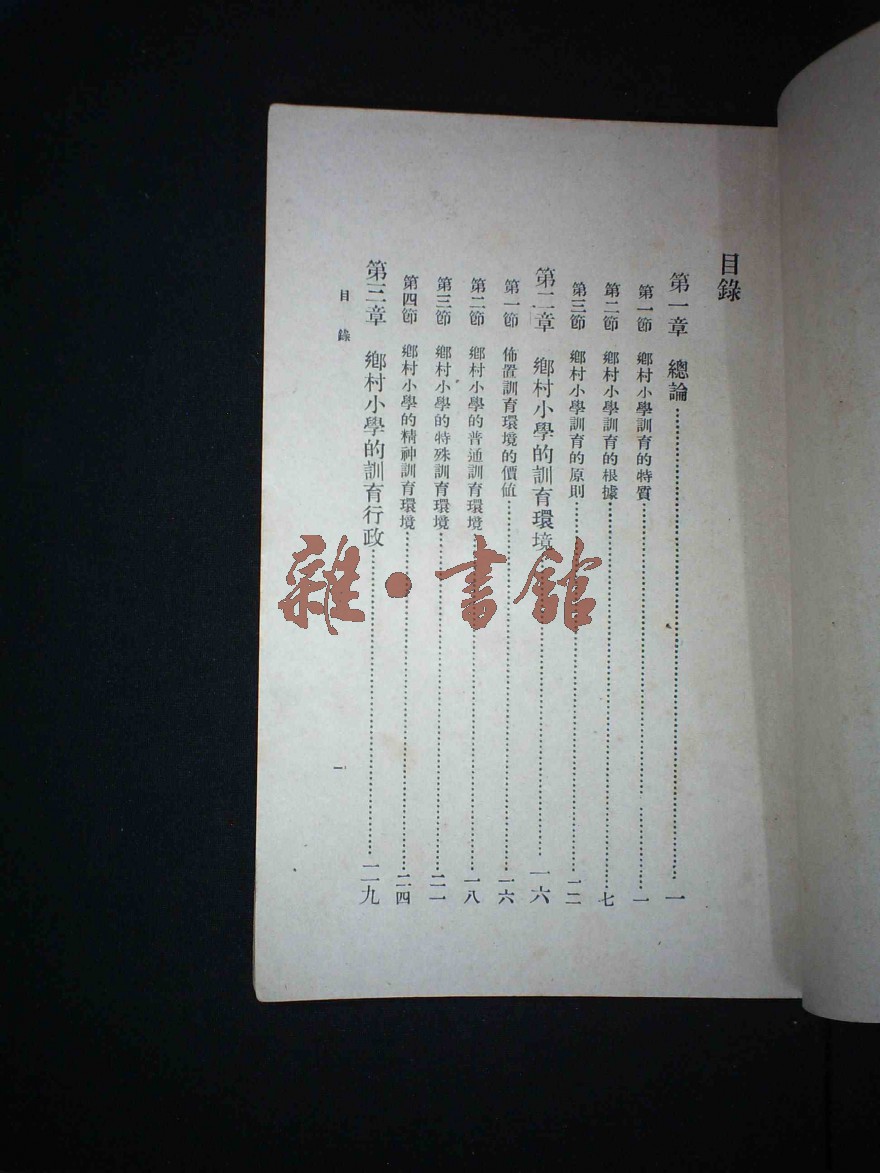 目錄
第一章 總論……一
第一節 鄉村小學訓育的特質……一
第二節 鄉村小學訓育的根據……七
第三節 鄉村小學訓育的原則……一二
第二章 鄉村小學的訓育環境……一六
第一節 佈置訓育環境的價值……一六
第二節 鄉村小學的普通訓育環境……一八
第三節 鄉村小學的特殊訓育環境……二一
第四節 鄉村小學的精神訓育環境……二四
第三章 鄉村小學的訓育行政……二九
目錄
一
雜·書館